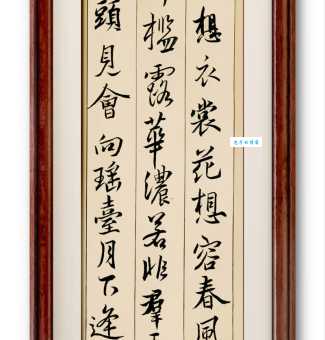 想衣裳花想容春風
檻露華濃若非群
頭見會向瑤臺月下逢